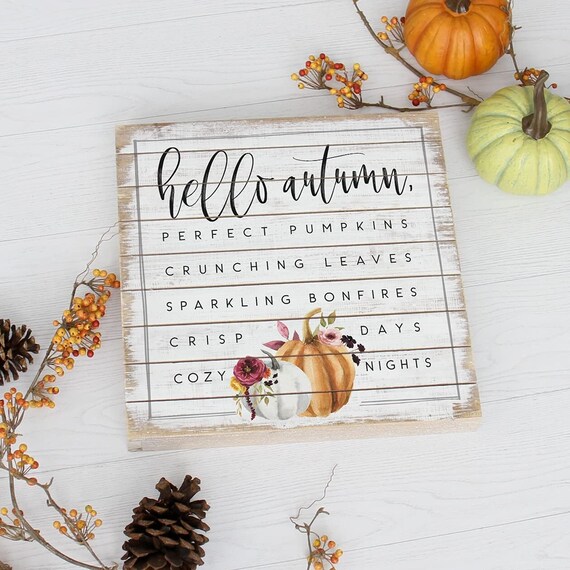 hello autumn,
PERFECT PUMPKINS
CRUNCHING LEAVES
SPARKLING BONFIRES
CRISP DAYS
COZY NIGHTS